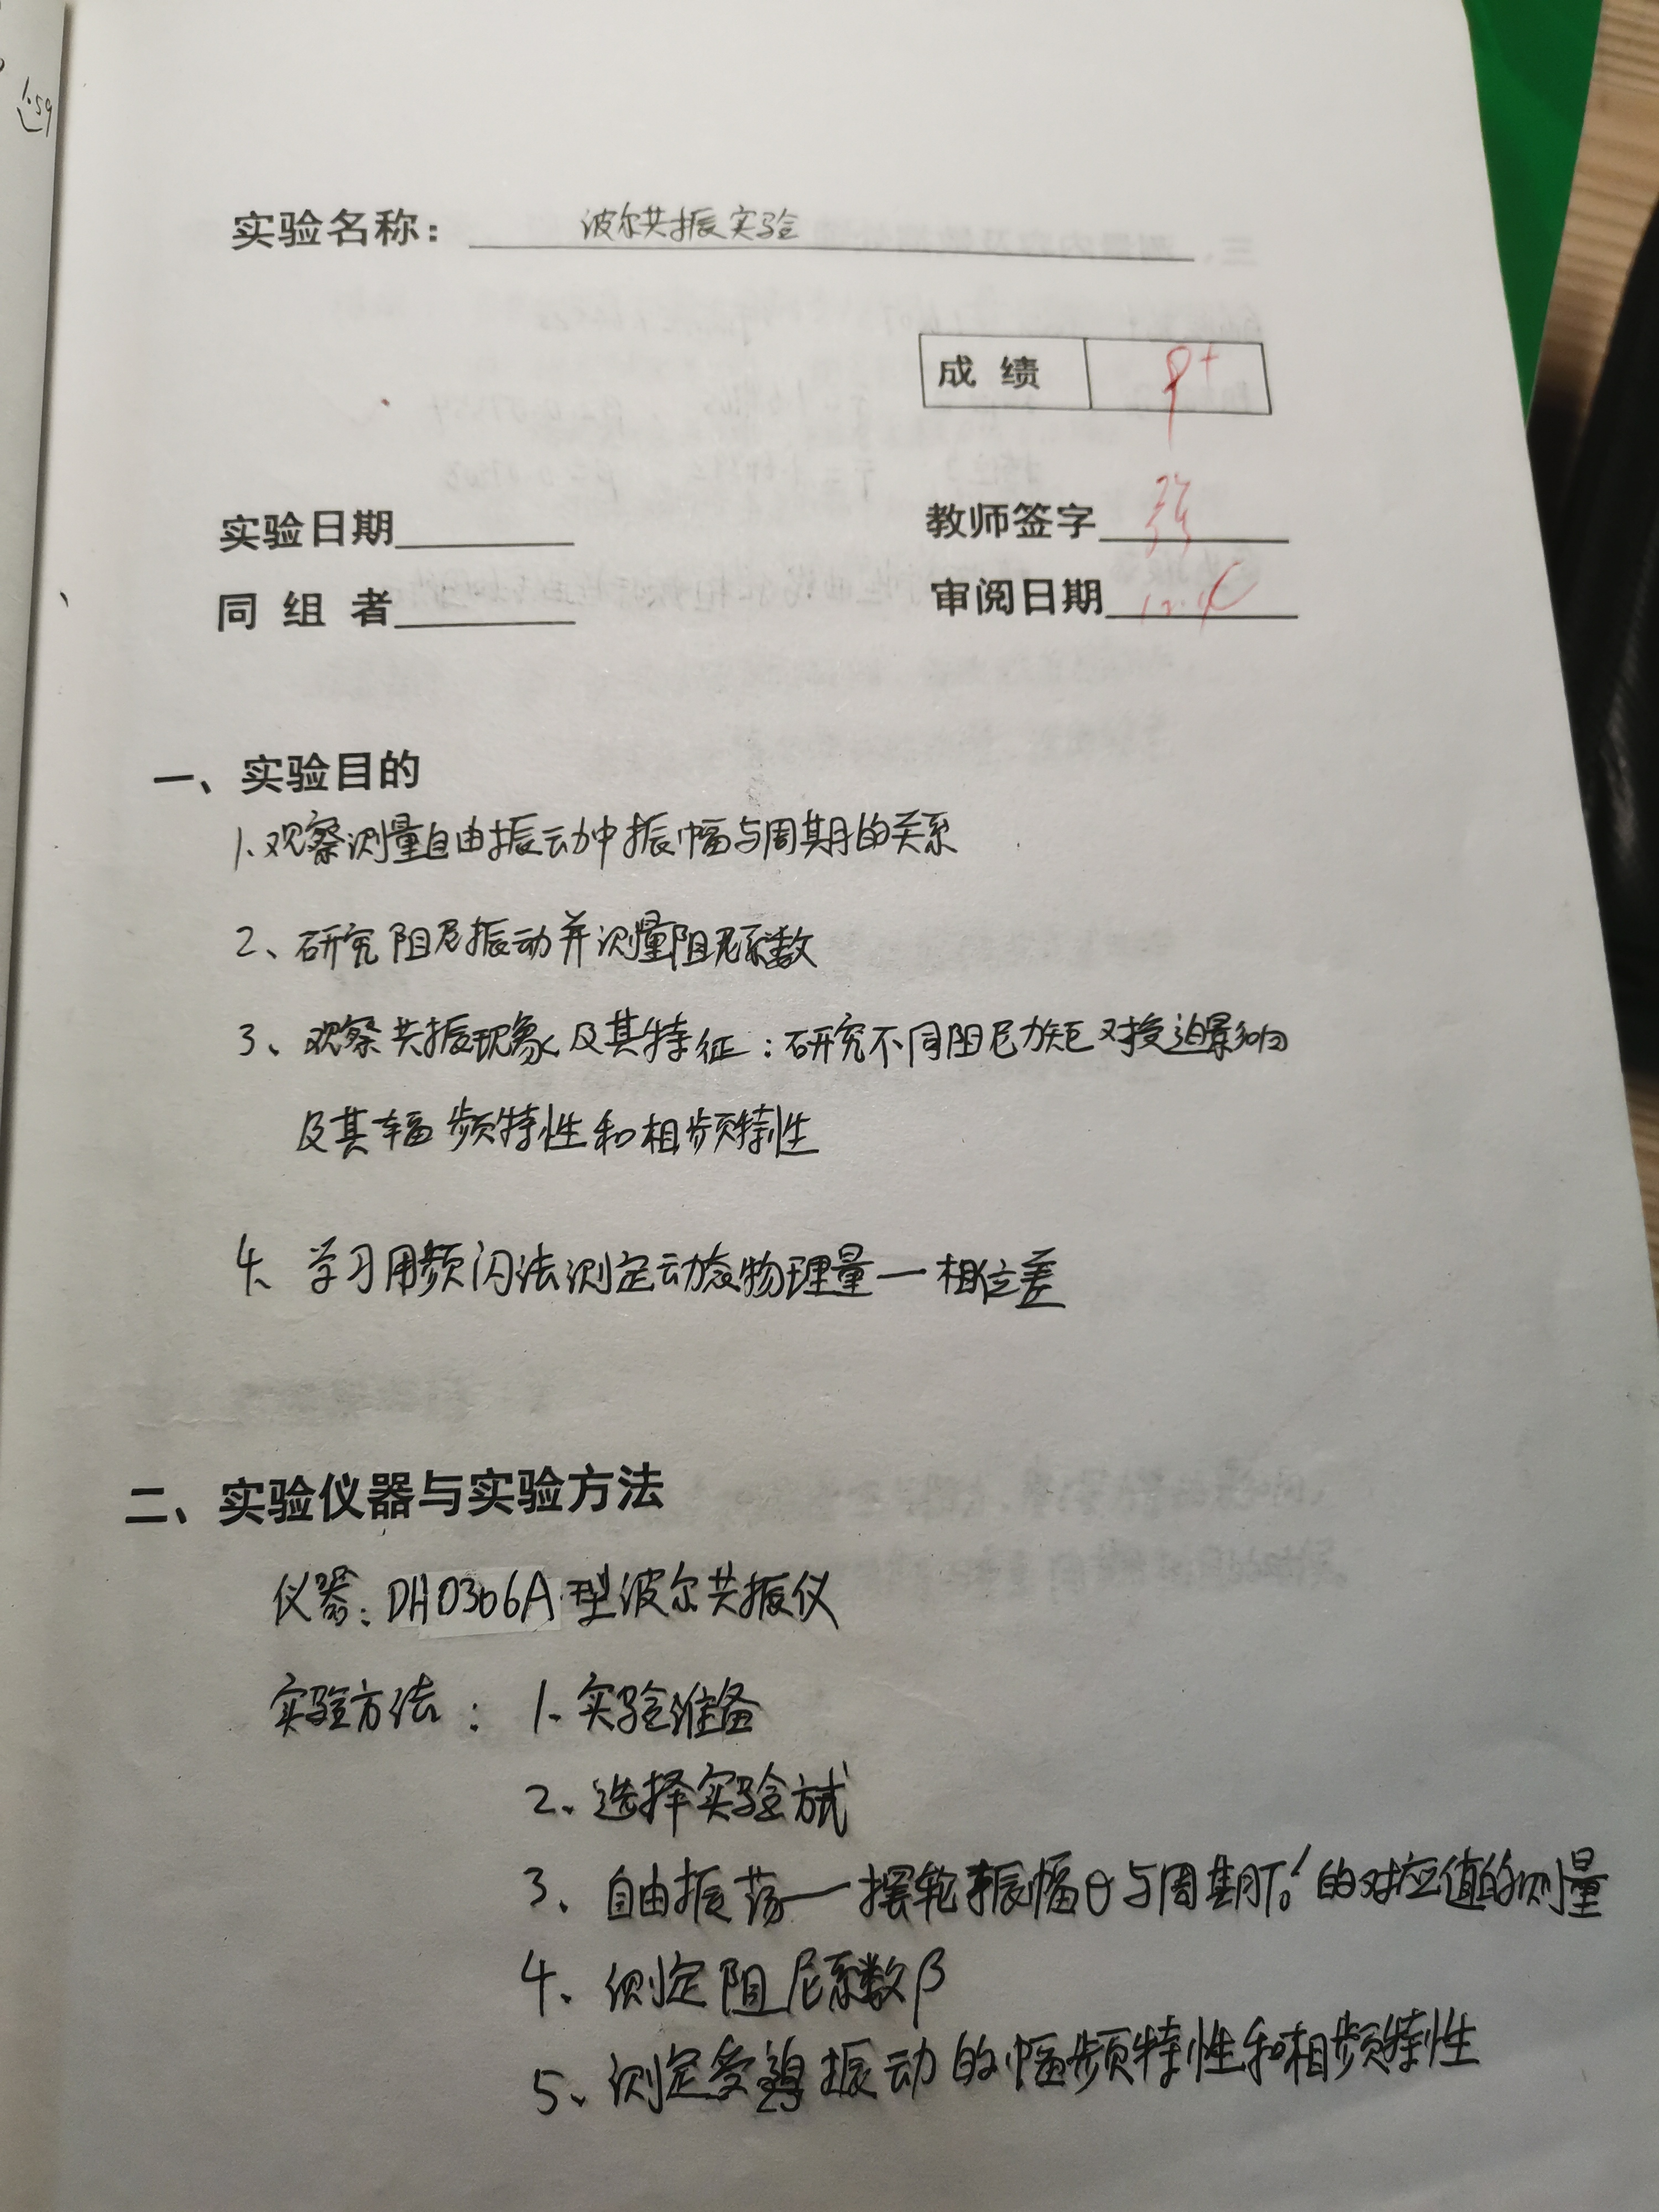 1.59
实验名称：波尔共振实验
成 绩 9+
实验日期
教师签字
同 组 者
审阅日期
一、实验目的
1、观察测量自由振动中振幅与周期的关系
2、研究阻尼振动并测量阻尼系数
3、观察共振现象及其特征：研究不同阻尼力矩对受迫影响
及其幅频特性和相频特性
4、学习用频闪法测定动态物理量一相位差
二、实验仪器与实验方法
仪器：DH0306A型波尔共振仪
实验方法：1、实验准备
2、选择实验方式
3、自由振荡—摆轮振幅θ与周期T₀′的对应值的测量
4、测定阻尼系数β
5、测定受迫振动的幅频特性和相频特性